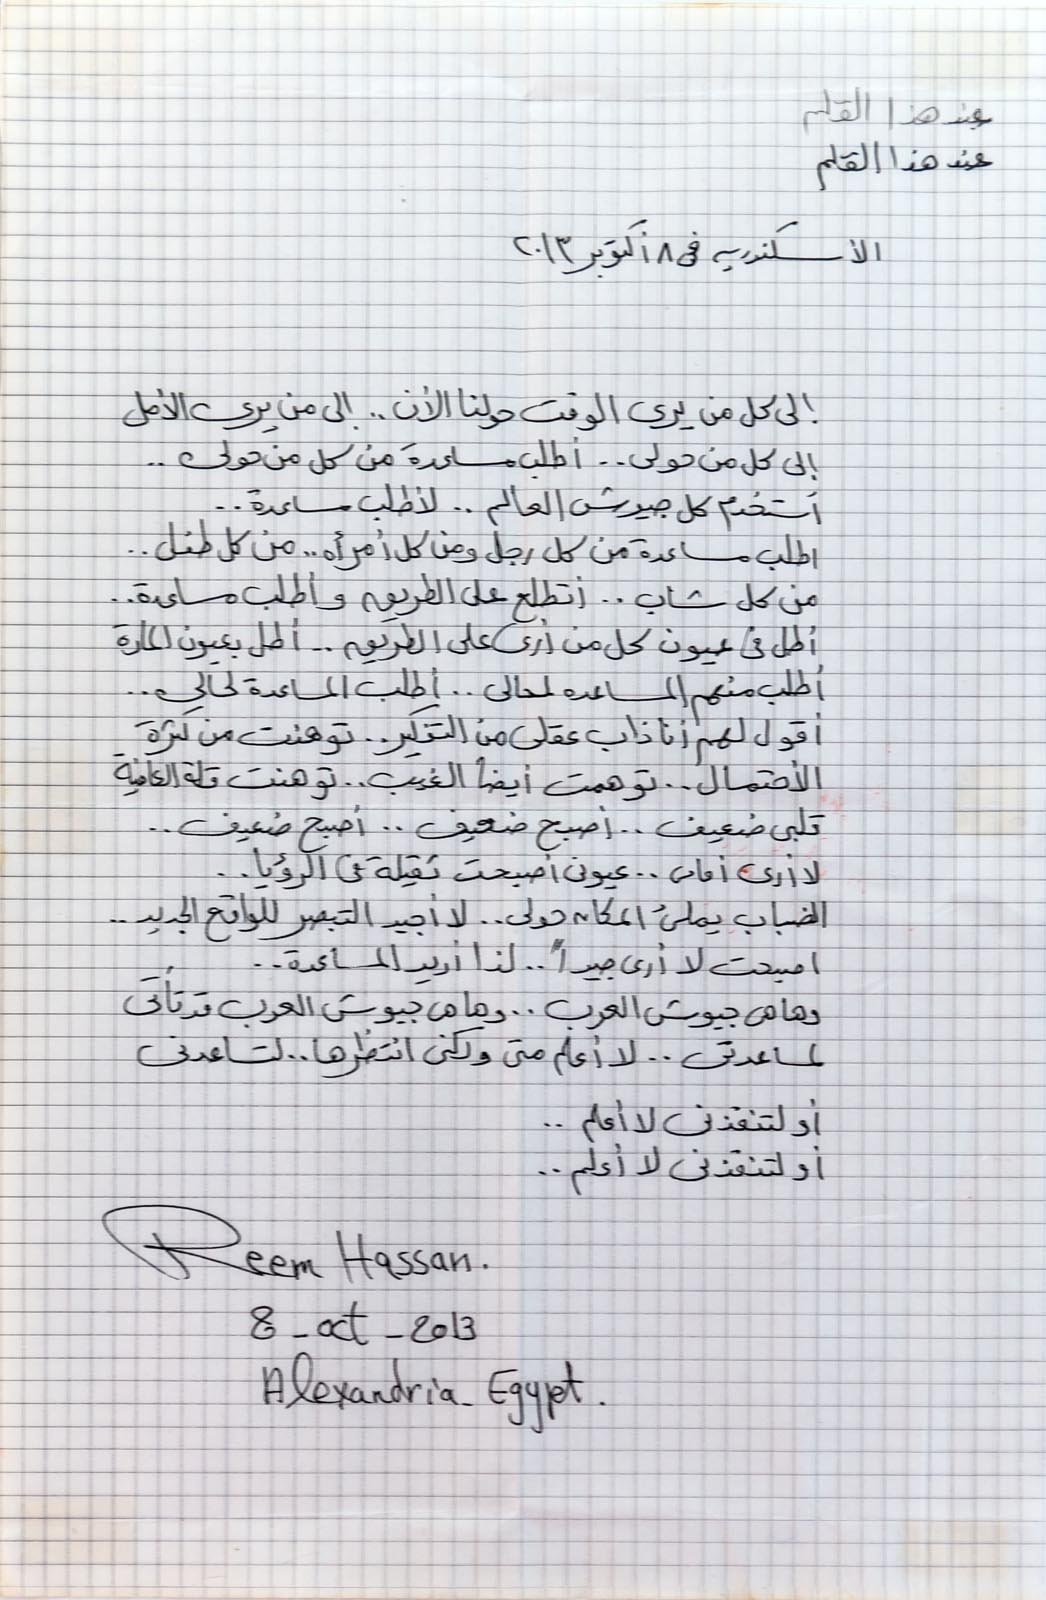 عند هذا القلم
عند هذا القلم
الأسكندريه فى ٨ أكتوبر ٢٠١٣
إلى كل من يرى الوقت حولنا الأن .. إلى من يرى الأمل
إلى كل من حولى .. أطلب مساعدة من كل من حولى ..
أستخدم كل جيوش العالم .. لأطلب مساعدة ..
اطلب مساعدة من كل رجل ومن كل أمرأه .. من كل طفل ..
من كل شاب .. أتطلع على الطريق وأطلب مساعدة ..
أطل فى عيون كل من أرى على الطريق .. أطل بعيون المارة
أطلب منهم المساعده لحالى .. أطلب المساعدة لحالى ..
أقول لهم أنا ذاب عقلى من التفكير .. توهنت من كثرة
الأحتمال .. توهمت أيضاً الغريب .. توهنت قلة العافية
قلبى ضعيف .. أصبح ضعيف .. أصبح ضعيف ..
لا أرى أمامى .. عيونى أصبحت ثقيلة فى الرؤيا ..
الضباب يملئ المكان حولى .. لا أجيد التبصر للواقع الجديد ..
اصبحت لا أرى جيداً .. لذا أريد المساعدة ..
وها هى جيوش العرب .. وها هى جيوش العرب قد تأتى
لمساعدتى .. لا أعلم متى ولكنى انتظرها .. لتساعدنى
أو لتنقذنى لا أعلم ..
أو لتنقذنى لا أعلم ..
Reem Hassan.
8 - oct - 2013
Alexandria - Egypt.